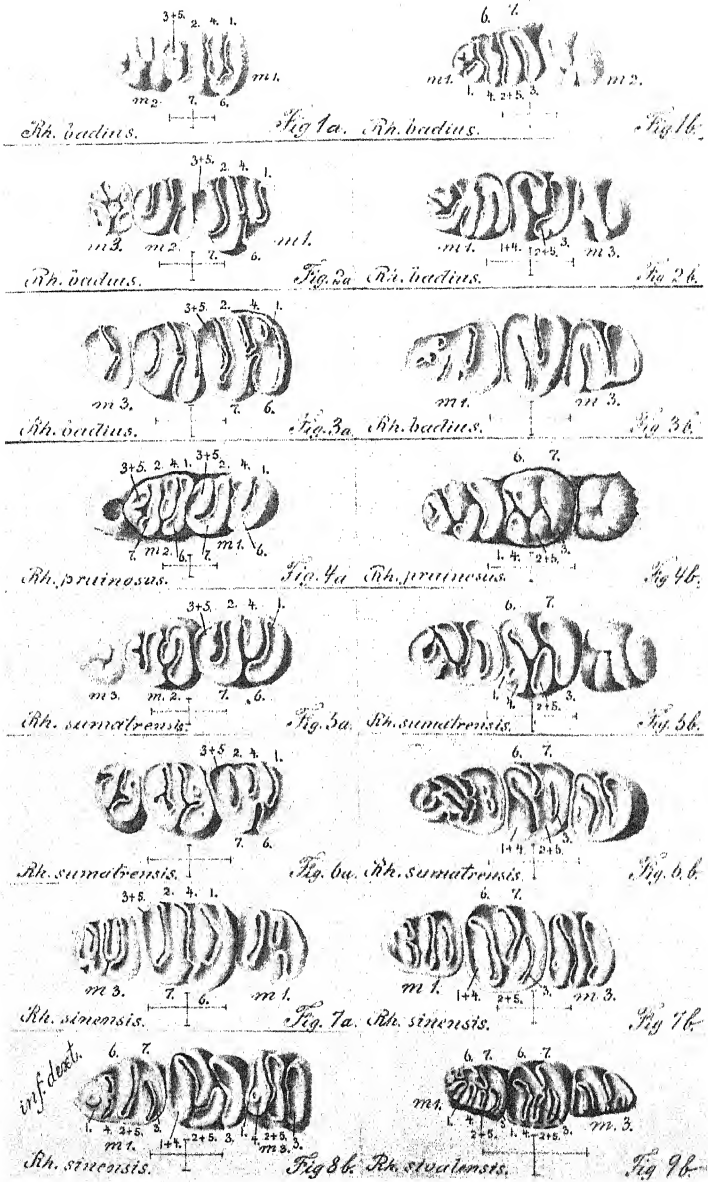 3+5. 2. 4. 1.
m1.
m2. 7. 6.
Rh. badius. Fig 1a.
6. 7.
m1. m2.
1. 4. 2+5. 3.
Rh. badius. Fig 1b.
3+5. 2. 4. 1.
m3. m2. 7. 6. m1.
Rh. badius. Fig. 2a
m1. 1+4. 2+5. 3. m3.
Rh. badius. Fig 2b.
3+5. 2. 4. 1.
m3. 7. 6.
Rh. badius. Fig. 3a
m1. m3.
Rh. badius. Fig 3b.
3+5. 2. 4. 1. 3+5. 2. 4. 1.
7. m2. 6. 7. m1. 6.
Rh. pruinosus. Fig. 4a
6. 7.
1. 4. 2+5. 3.
Rh. pruinosus. Fig 4b.
3+5. 2. 4. 1.
m3. m.2. 7. 6.
Rh. sumatrensis. Fig. 5a.
6. 7.
1. 4. 2+5. 3.
Rh. sumatrensis. Fig. 5b.
3+5 2. 4. 1.
7. 6.
Rh. sumatrensis. Fig. 6a.
6. 7.
1+4. 2+5. 3.
Rh. sumatrensis. Fig. 6b.
3+5. 2. 4. 1.
m3. 7. 6. m1.
Rh. sinensis. Fig. 7a.
6. 7.
m1. 1+4. 2+5. 3. m3.
Rh. sinensis. Fig 7b.
inf. dext.
6. 7.
1. 4. 2+5. 3. 1+4. 2+5. 3. 1. 4. 2+5. 3.
m1. m3.
Rh. sinensis. Fig 8b.
6. 7. 6. 7.
m1. 1. 4. 2+5. 3. 1. 4. 2+5. 3. m.3.
Rh. sivalensis. Fig 9b.